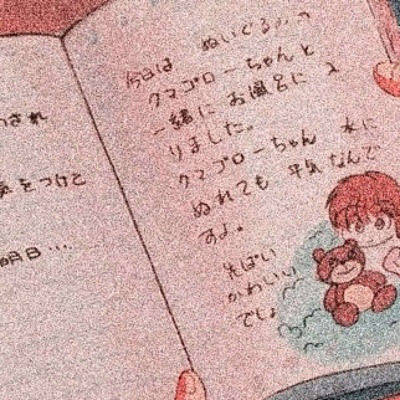 今日は ぬいぐるみの
クマゴローちゃんと
一緒に お風呂に 入
りました。
クマゴローちゃん 水に
ぬれても 平気なんで
すよ。
先ぱい
かわいい
でしょ
され
をつけて
明日‥‥